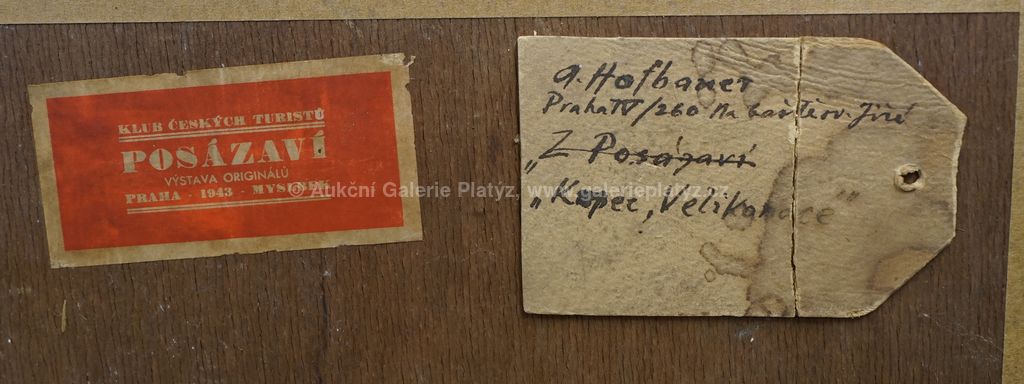 KLUB ČESKÝCH TURISTŮ
POSÁZAVÍ
VÝSTAVA ORIGINÁLŮ
PRAHA - 1943 - MYSLBEK
© Aukční Galerie Platýz, www.galerieplatyz.cz
A. Hofbauer
Praha IV/260 Na baště sv. Jiří
„Z Posázaví
„Kopec, Velikonoce"